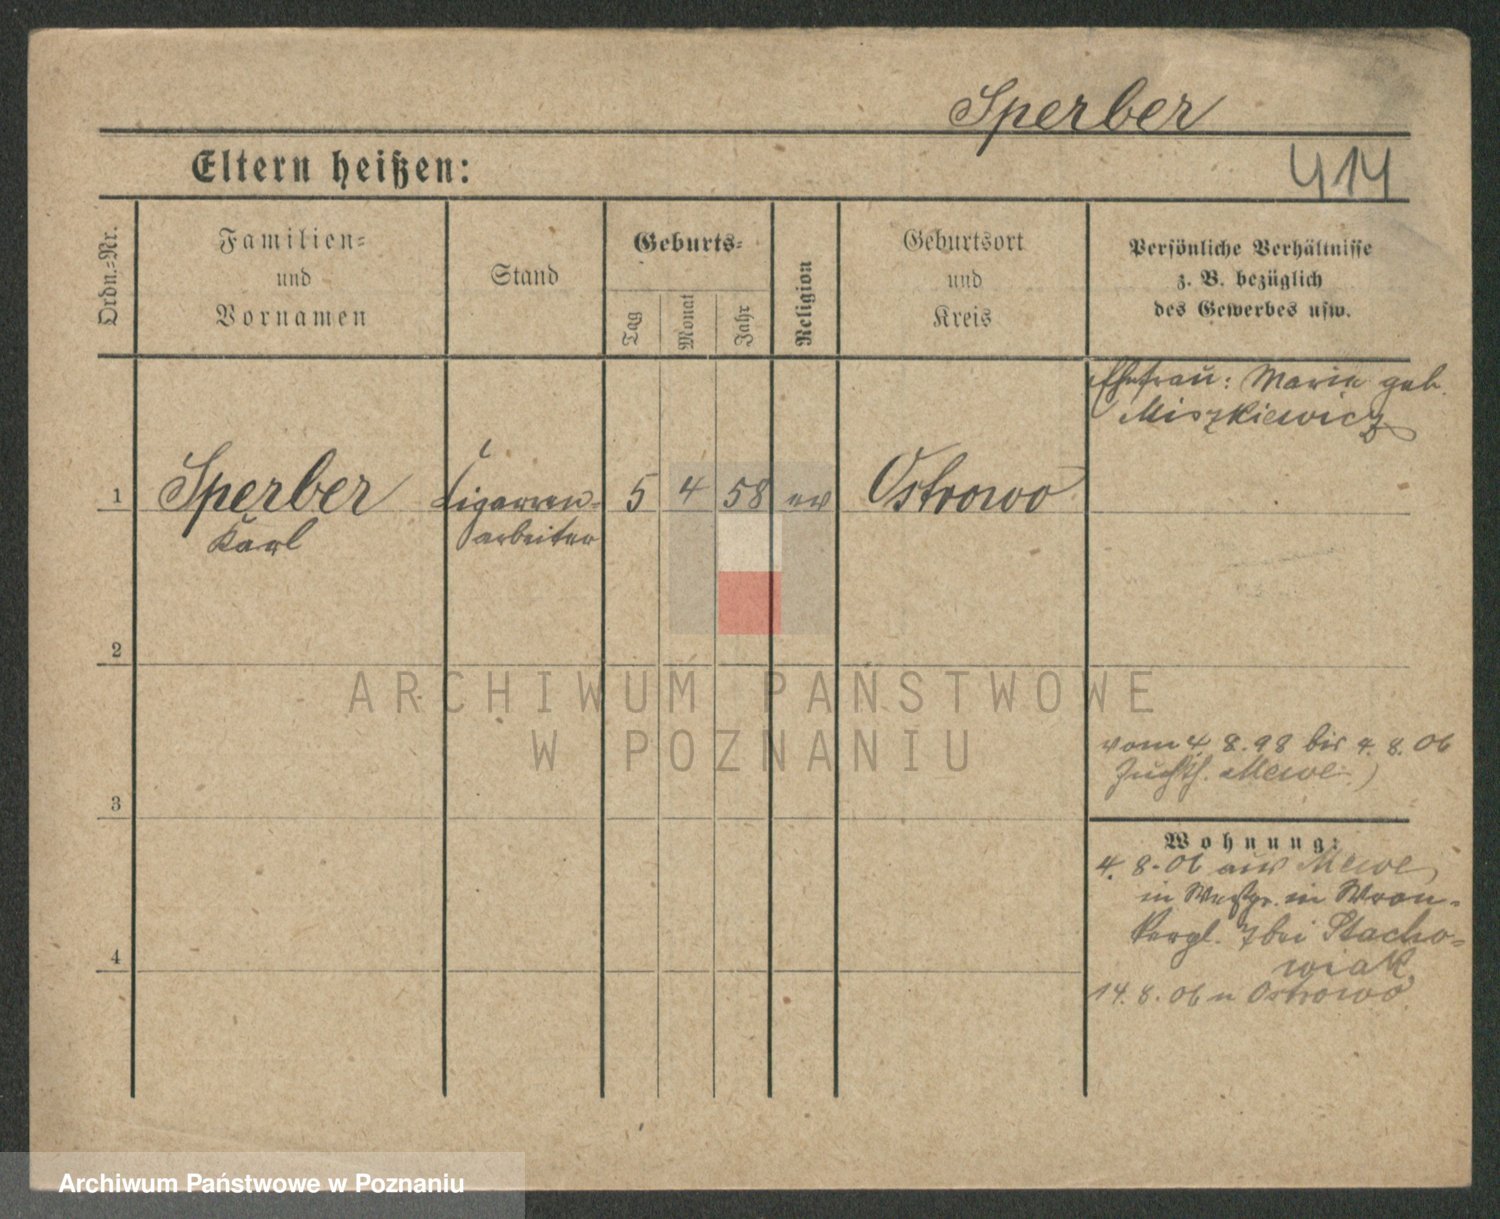 Sperber
Eltern heißen:
414
Ordn.-Nr.
Familien-
und
Vornamen
Stand
Geburts-
Tag
Monat
Jahr
Religion
Geburtsort
und
Kreis
Persönliche Verhältnisse
z. B. bezüglich
des Gewerbes usw.
Ehefrau: Marie geb.
Miszkiewicz
1 Sperber Cigarren- 5 4 58 ev Ostrowo
Karl arbeiter
2
ARCHIWUM PAŃSTWOWE
W POZNANIU
vom 4. 8. 98 bis 4. 8. 06
Zuchth. Mewe
3
Wohnung:
4. 8. 06 aus Mewe,
in Westpr. in Wron-
kergl. 7 bei Stacho-
wiak,
4
14. 8. 06 n Ostrowo
Archiwum Państwowe w Poznaniu